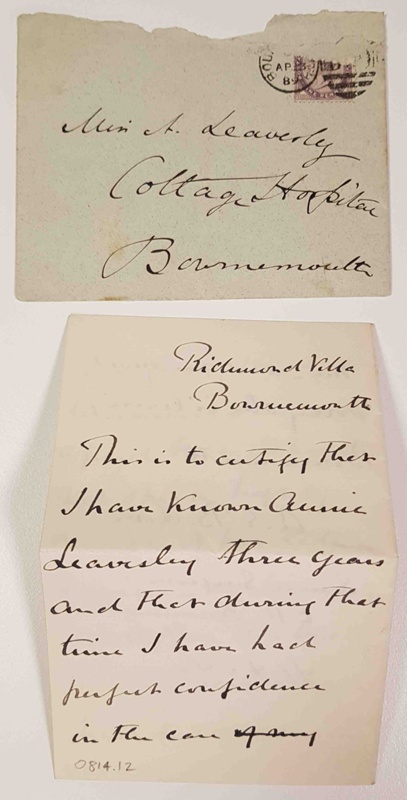 AP 3
89
Miss A. Leaversly
Cottage Hospital
Bournemouth
Richmond Villa
Bournemouth
This is to certify that
I have known Annie
Leavesley three years
and that during that
time I have had
perfect confidence
in the care of my
0814.12